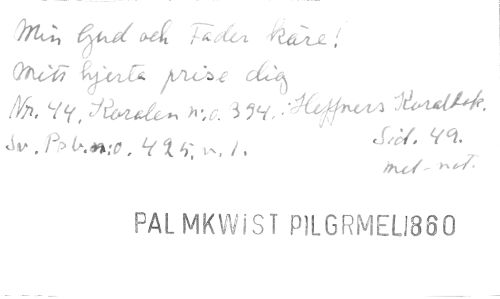 Min Gud och Fader käre!
Mitt hjerta prise dig
Nr. 44, Koralen n:o. 394. Hæffners Koralbok.
Sv. Psb. n:o. 425, v. 1. Sid. 49.
met-not.
PALMKWIST PILGRMEL1860